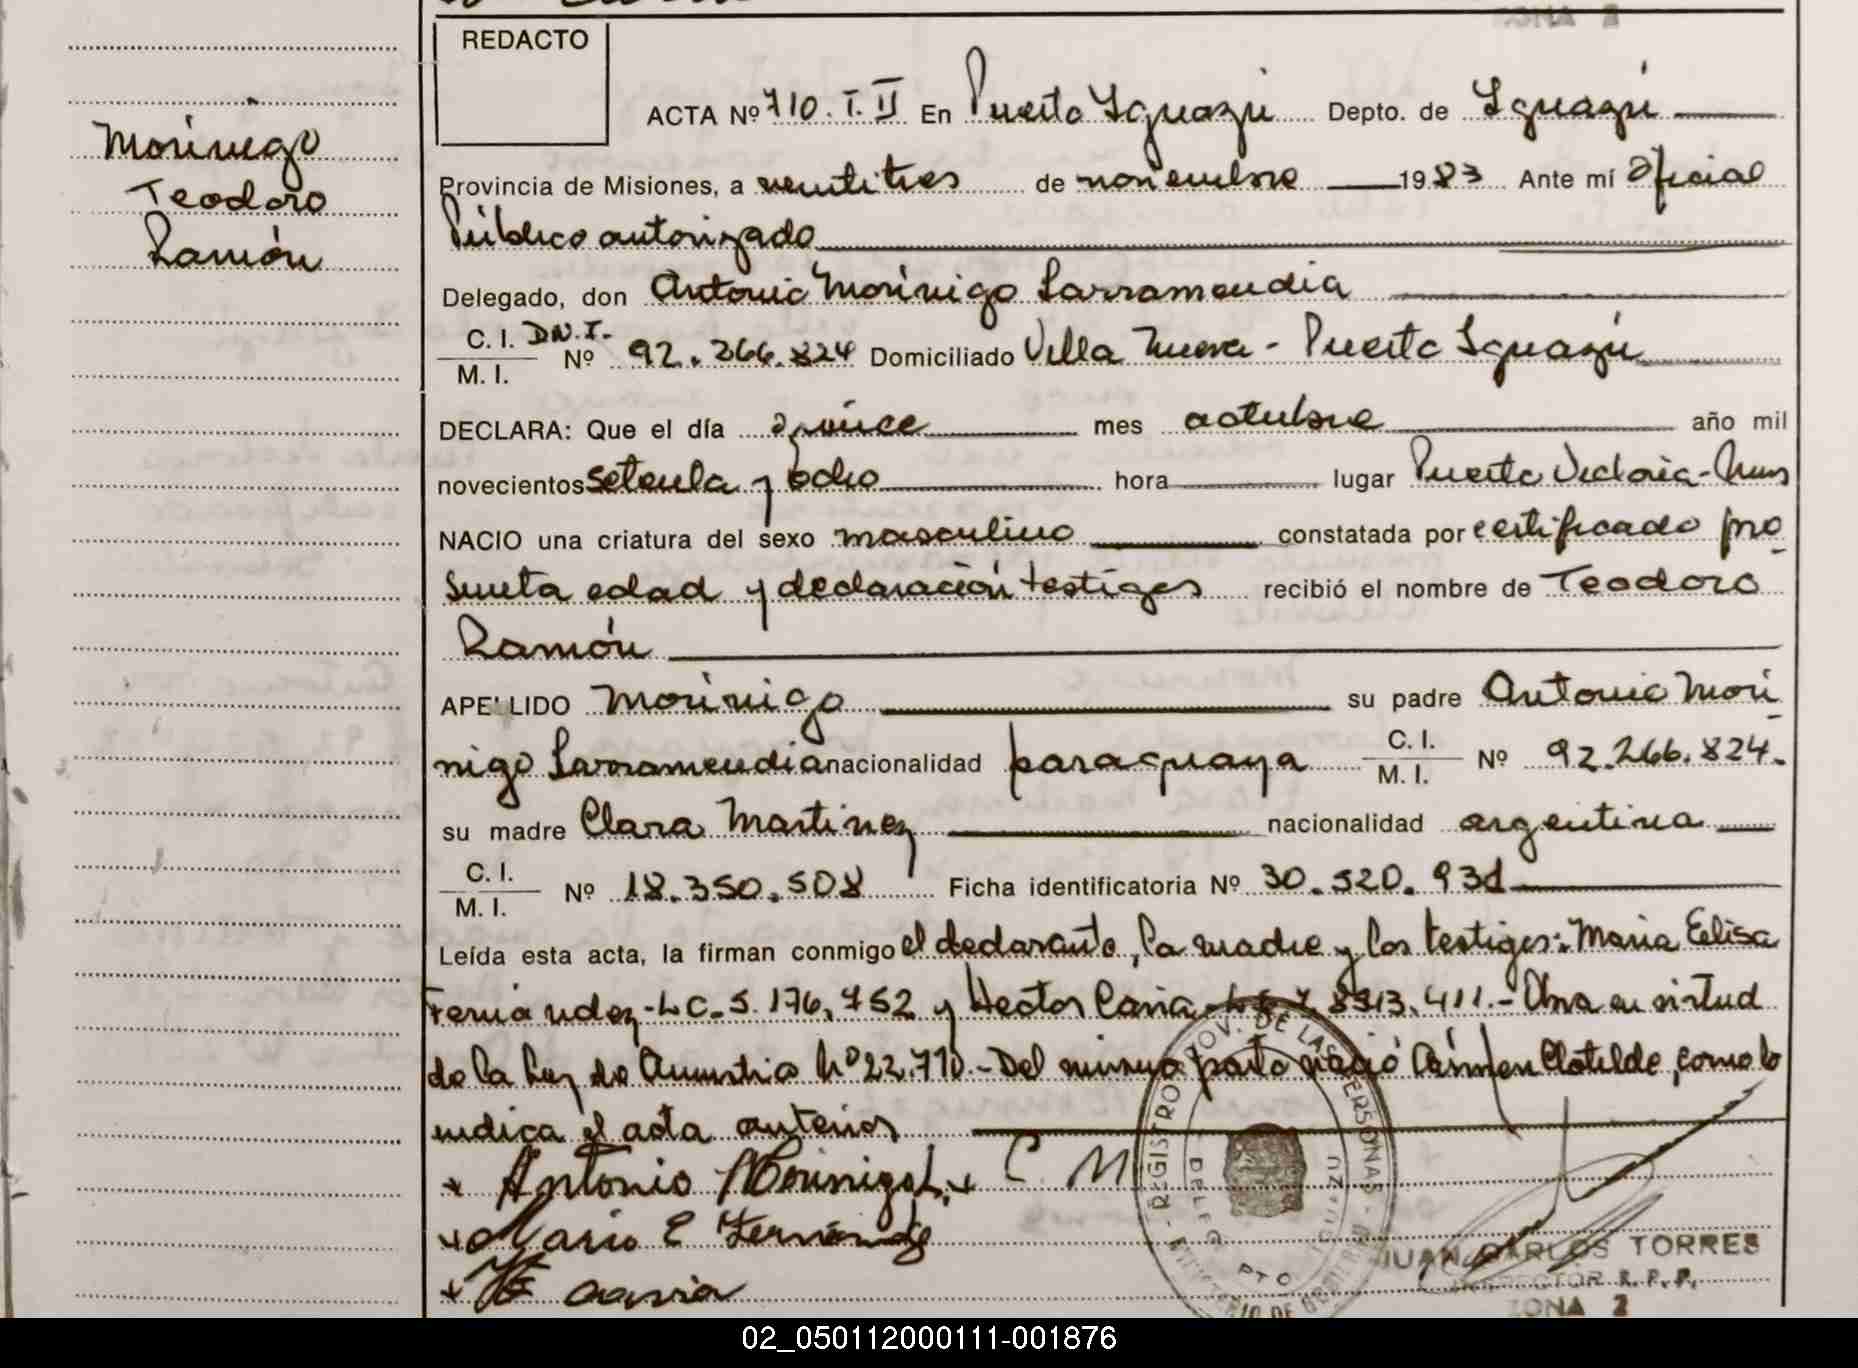 REDACTO
ACTA Nº 710. T. II En Puerto Iguazú Depto. de Iguazú
Morínigo
Teodoro
Ramón
Provincia de Misiones, a veintitres de noviembre 1983 Ante mí Oficial
Público autorizado
Delegado, don Antonio Morínigo Larramendia
C. I. D.N.I.
M. I. Nº 92.266.824 Domiciliado Villa Nueva - Puerto Iguazú
DECLARA: Que el día quince mes octubre año mil
novecientos setenta y ocho hora lugar Puerto Victoria-Mnes
NACIO una criatura del sexo masculino constatada por certificado pre
sunta edad y declaración testigos recibió el nombre de Teodoro
Ramón
APELLIDO Morínigo su padre Antonio Morí
nigo Larramendia nacionalidad paraguaya C. I. M. I. Nº 92.266.824.
su madre Clara Martinez nacionalidad argentina
C. I. M. I. Nº 18.350.508 Ficha identificatoria Nº 30.520.931
Leída esta acta, la firman conmigo el declarante, la madre y los testigos: Maria Elisa
Fernandez - L.C. 5.176.752 y Hector - Obra en virtud
de la Ley de Amnistia Nº 22.710.- Del mismo parto nació Cármen Clotilde, como lo
indica el acta anterior
Antonio Morinigo L. C M
Maria E Fernández
REGISTRO PROV. DE LAS PERSONAS
JUAN CARLOS TORRES
INSPECTOR R. P. P.
ZONA 2
02_050112000111-001876